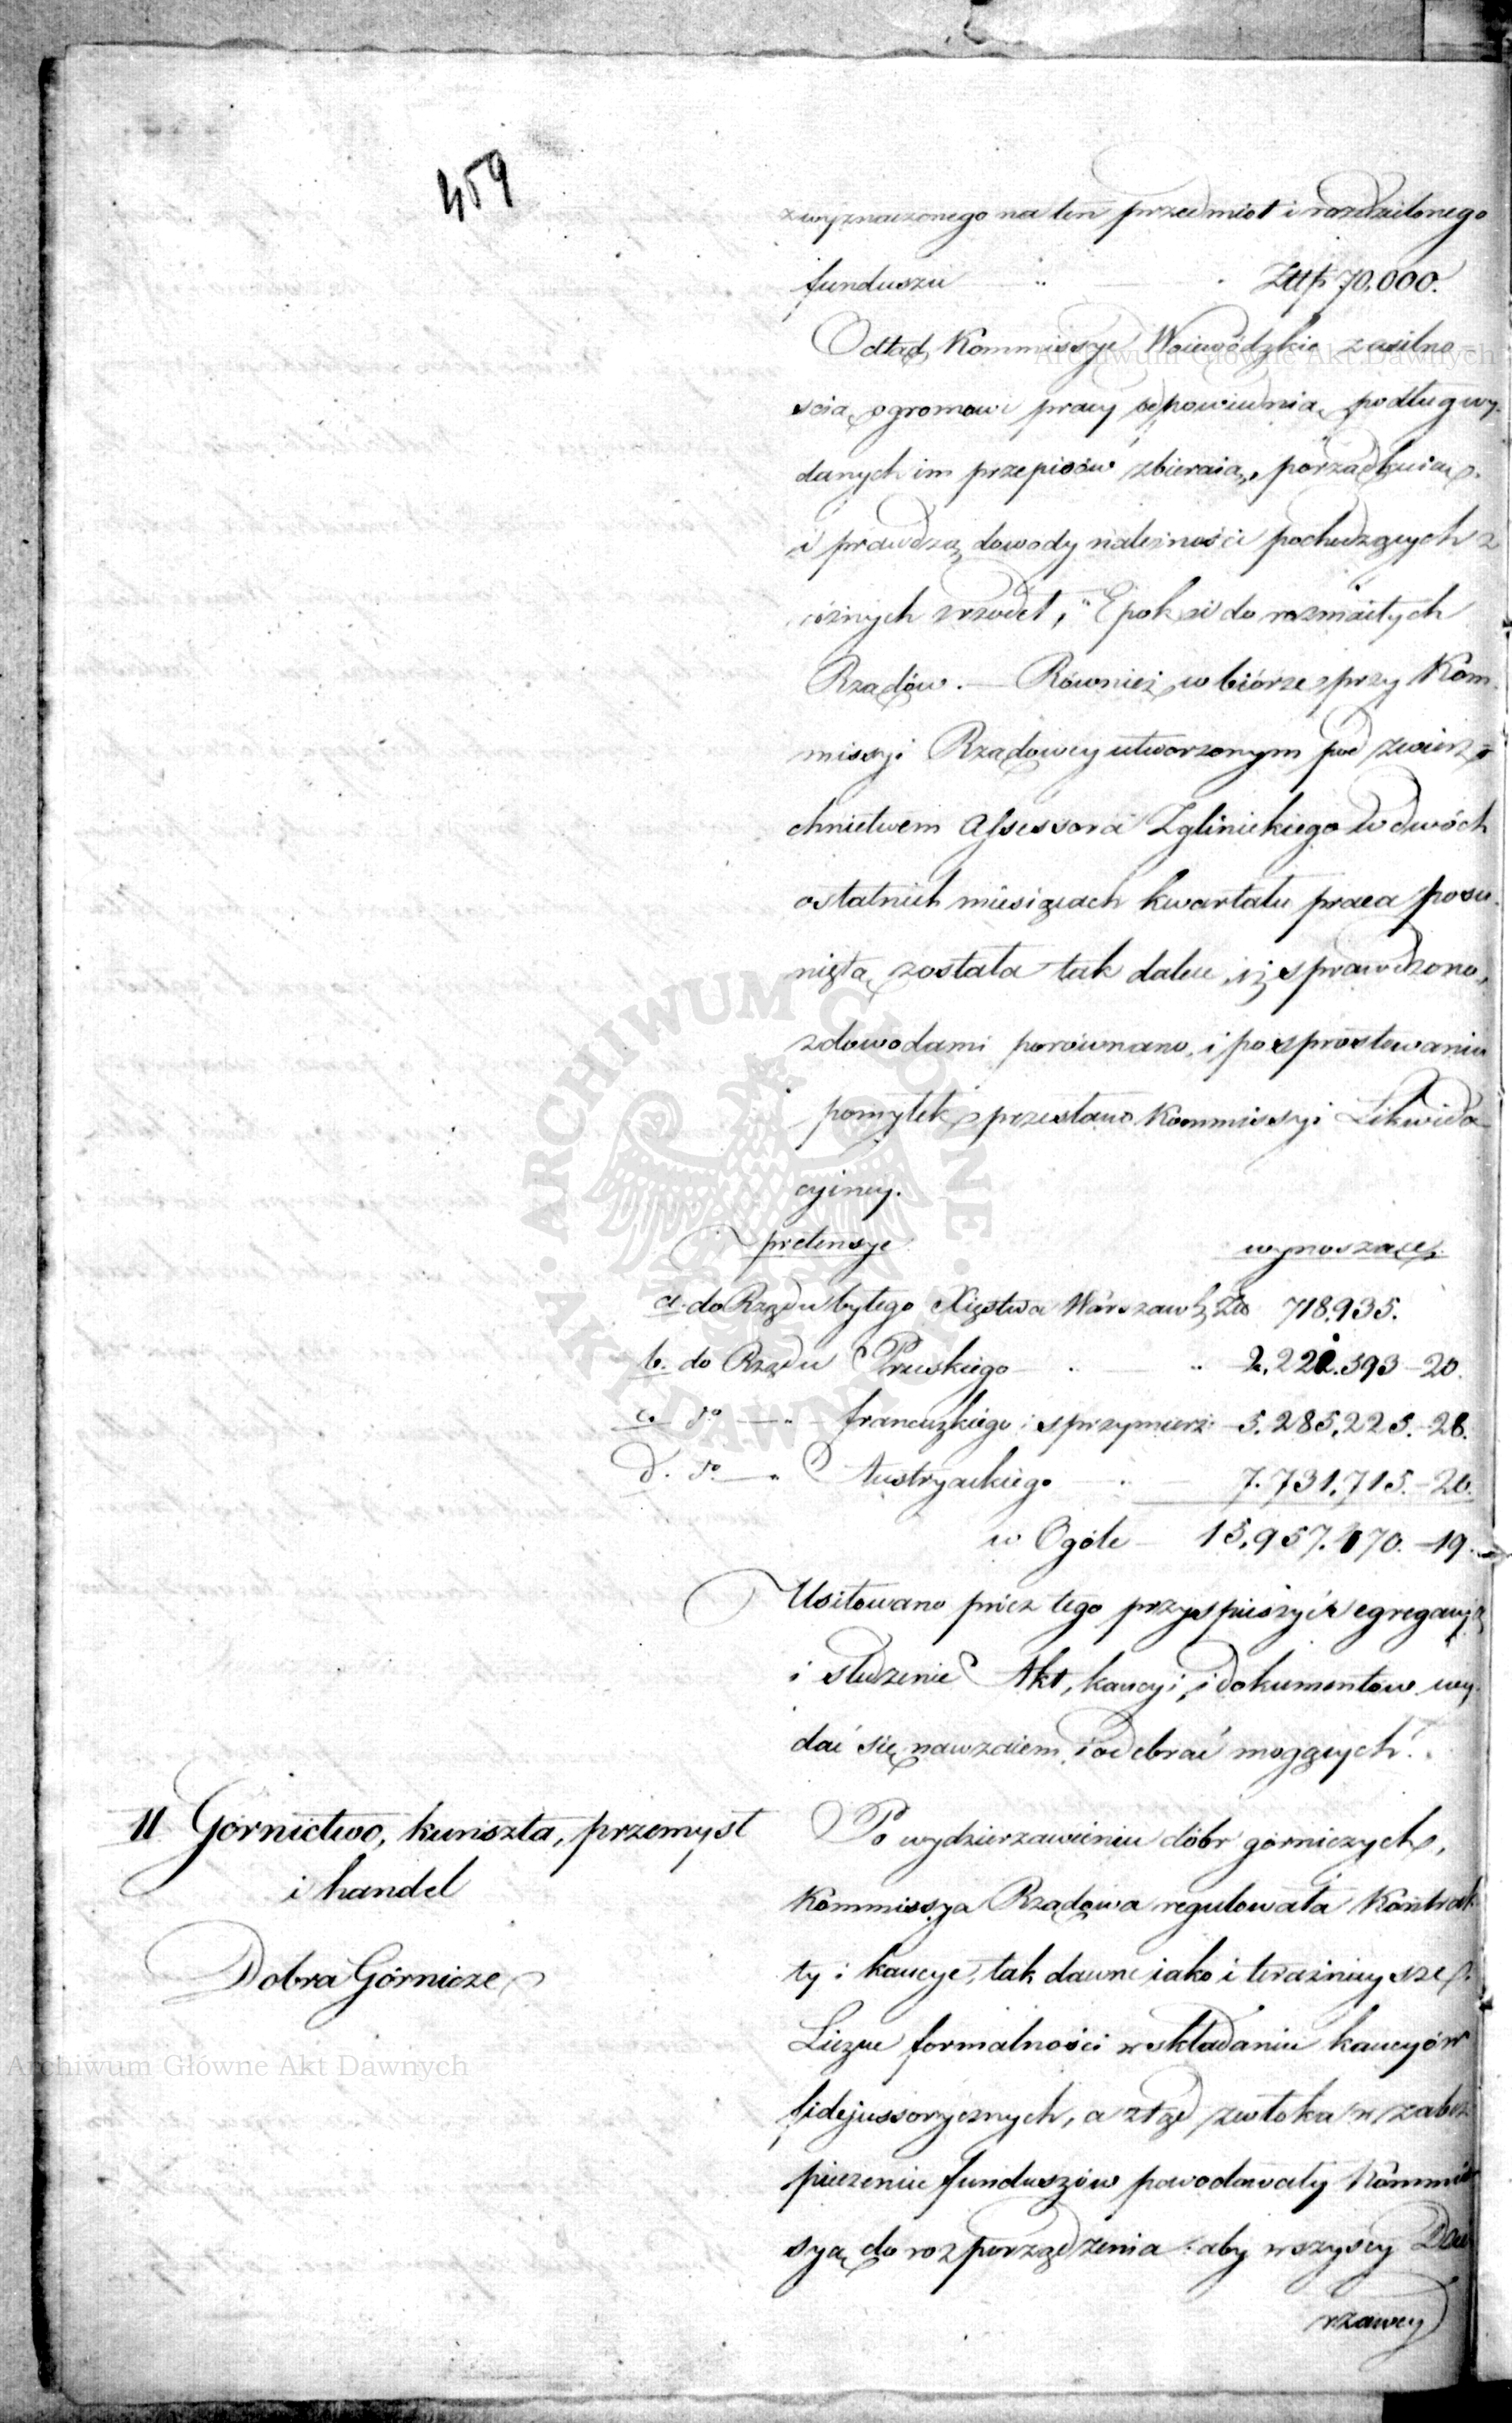 459
z wyznaczonego na ten przedmiot i rozdzielonego
funduszu Złłp 70,000.
Odtąd Kommissye Woiewódzkie z usilno-
ścią ogromowi pracy odpowiednią, podług wy-
danych im przepisów zbieraią, porządkuią
i prawdzą dowody należności pochodzących z
różnych źrzódeł, Epok i do rozmaitych
Rządów. — Również w biórze przy Kom-
missyi Rządowey utworzonym pod zwierz-
chnictwem Assessora Zglinickiego w dwóch
ostatnich miesiącach kwartału praca posu-
niętą została tak dalece, iż sprawdzono,
z dowodami porównano, i po sprostowaniu
pomyłek przesłano Kommissyi Likwida-
cyiney.
pretensye wynoszące
a. do Rządu byłego Xięstwa Warszaw. Zło 718,935.
b. do Rządu Pruskiego 2,221,593-20.
c. do — francuzkiego i sprzymierz. 5.285,225.-28.
d. do — Austryackiego 7.731.715.-20.
w Ogóle — 15,957.470.-19.
Usiłowano prócz tego przyspieszyć segregacyą
i śledzenie Akt, kaucyi, i dokumentów wy-
dać się nawzaiem i odebrać mogących.
II Górnictwo, kunszta, przemysł
i handel
Dobra Górnicze
Po wydzierzawieniu dóbr górniczych,
Kommissya Rządowa regulowała Kontrak-
ty i kaucye, tak dawne iako i teraźnieysze.
Liczne formalności w składaniu kaucyów
fidejussorycznych, a ztąd zwłoka w zabez-
pieczeniu funduszów powodowały Kommis-
syą do rozporządzenia: aby wszyscy Dzie-
rzawcy
Archiwum Główne Akt Dawnych
Archiwum Główne Akt Dawnych
ARCHIWUM GŁÓWNE AKT DAWNYCH